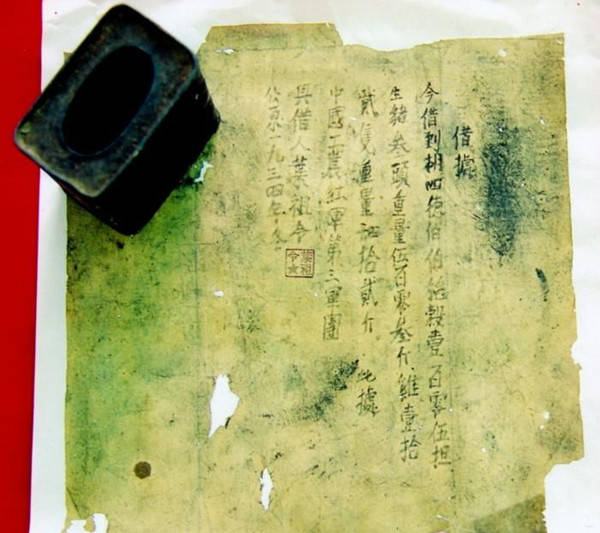 借據
今借到胡四德伯伯稻穀壹百零伍担
生豬叁頭重量伍百零叁斤雞壹拾
貳隻重量肆拾貳斤。此據
中國工農紅軍第三軍團
具借人葉祖令
公原一九三四年冬
葉祖令